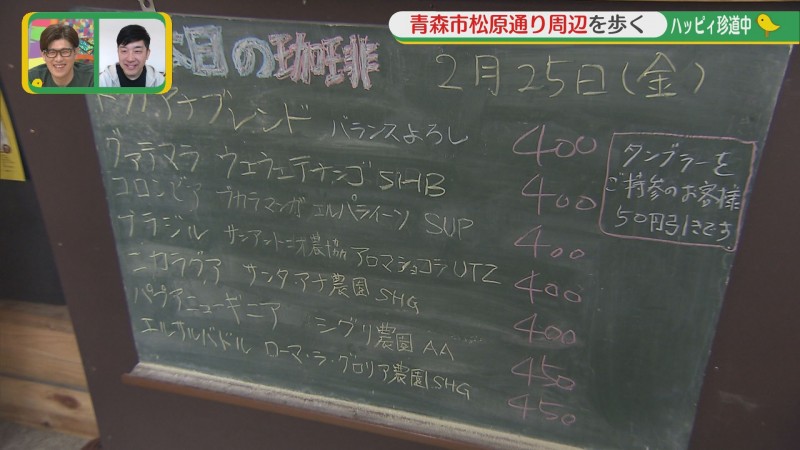 青森市松原通り周辺を歩く
ハッピィ珍道中
本日の珈琲
2月25日(金)
ブレンド バランスよろし 400
グァテマラ ウェウェテナンゴSHB 400
コロンビア ブカラマンガ エルパライーソ SUP 400
ブラジル サンアントニオ農協 アロマショコラUTZ 400
ニカラグァ サンタ・アナ農園SHG 400
パプアニューギニア シグリ農園 AA 450
エルサルバドル ローマ・ラ・グロリア農園SHG 450
タンブラーを
ご持参のお客様
50円引きです